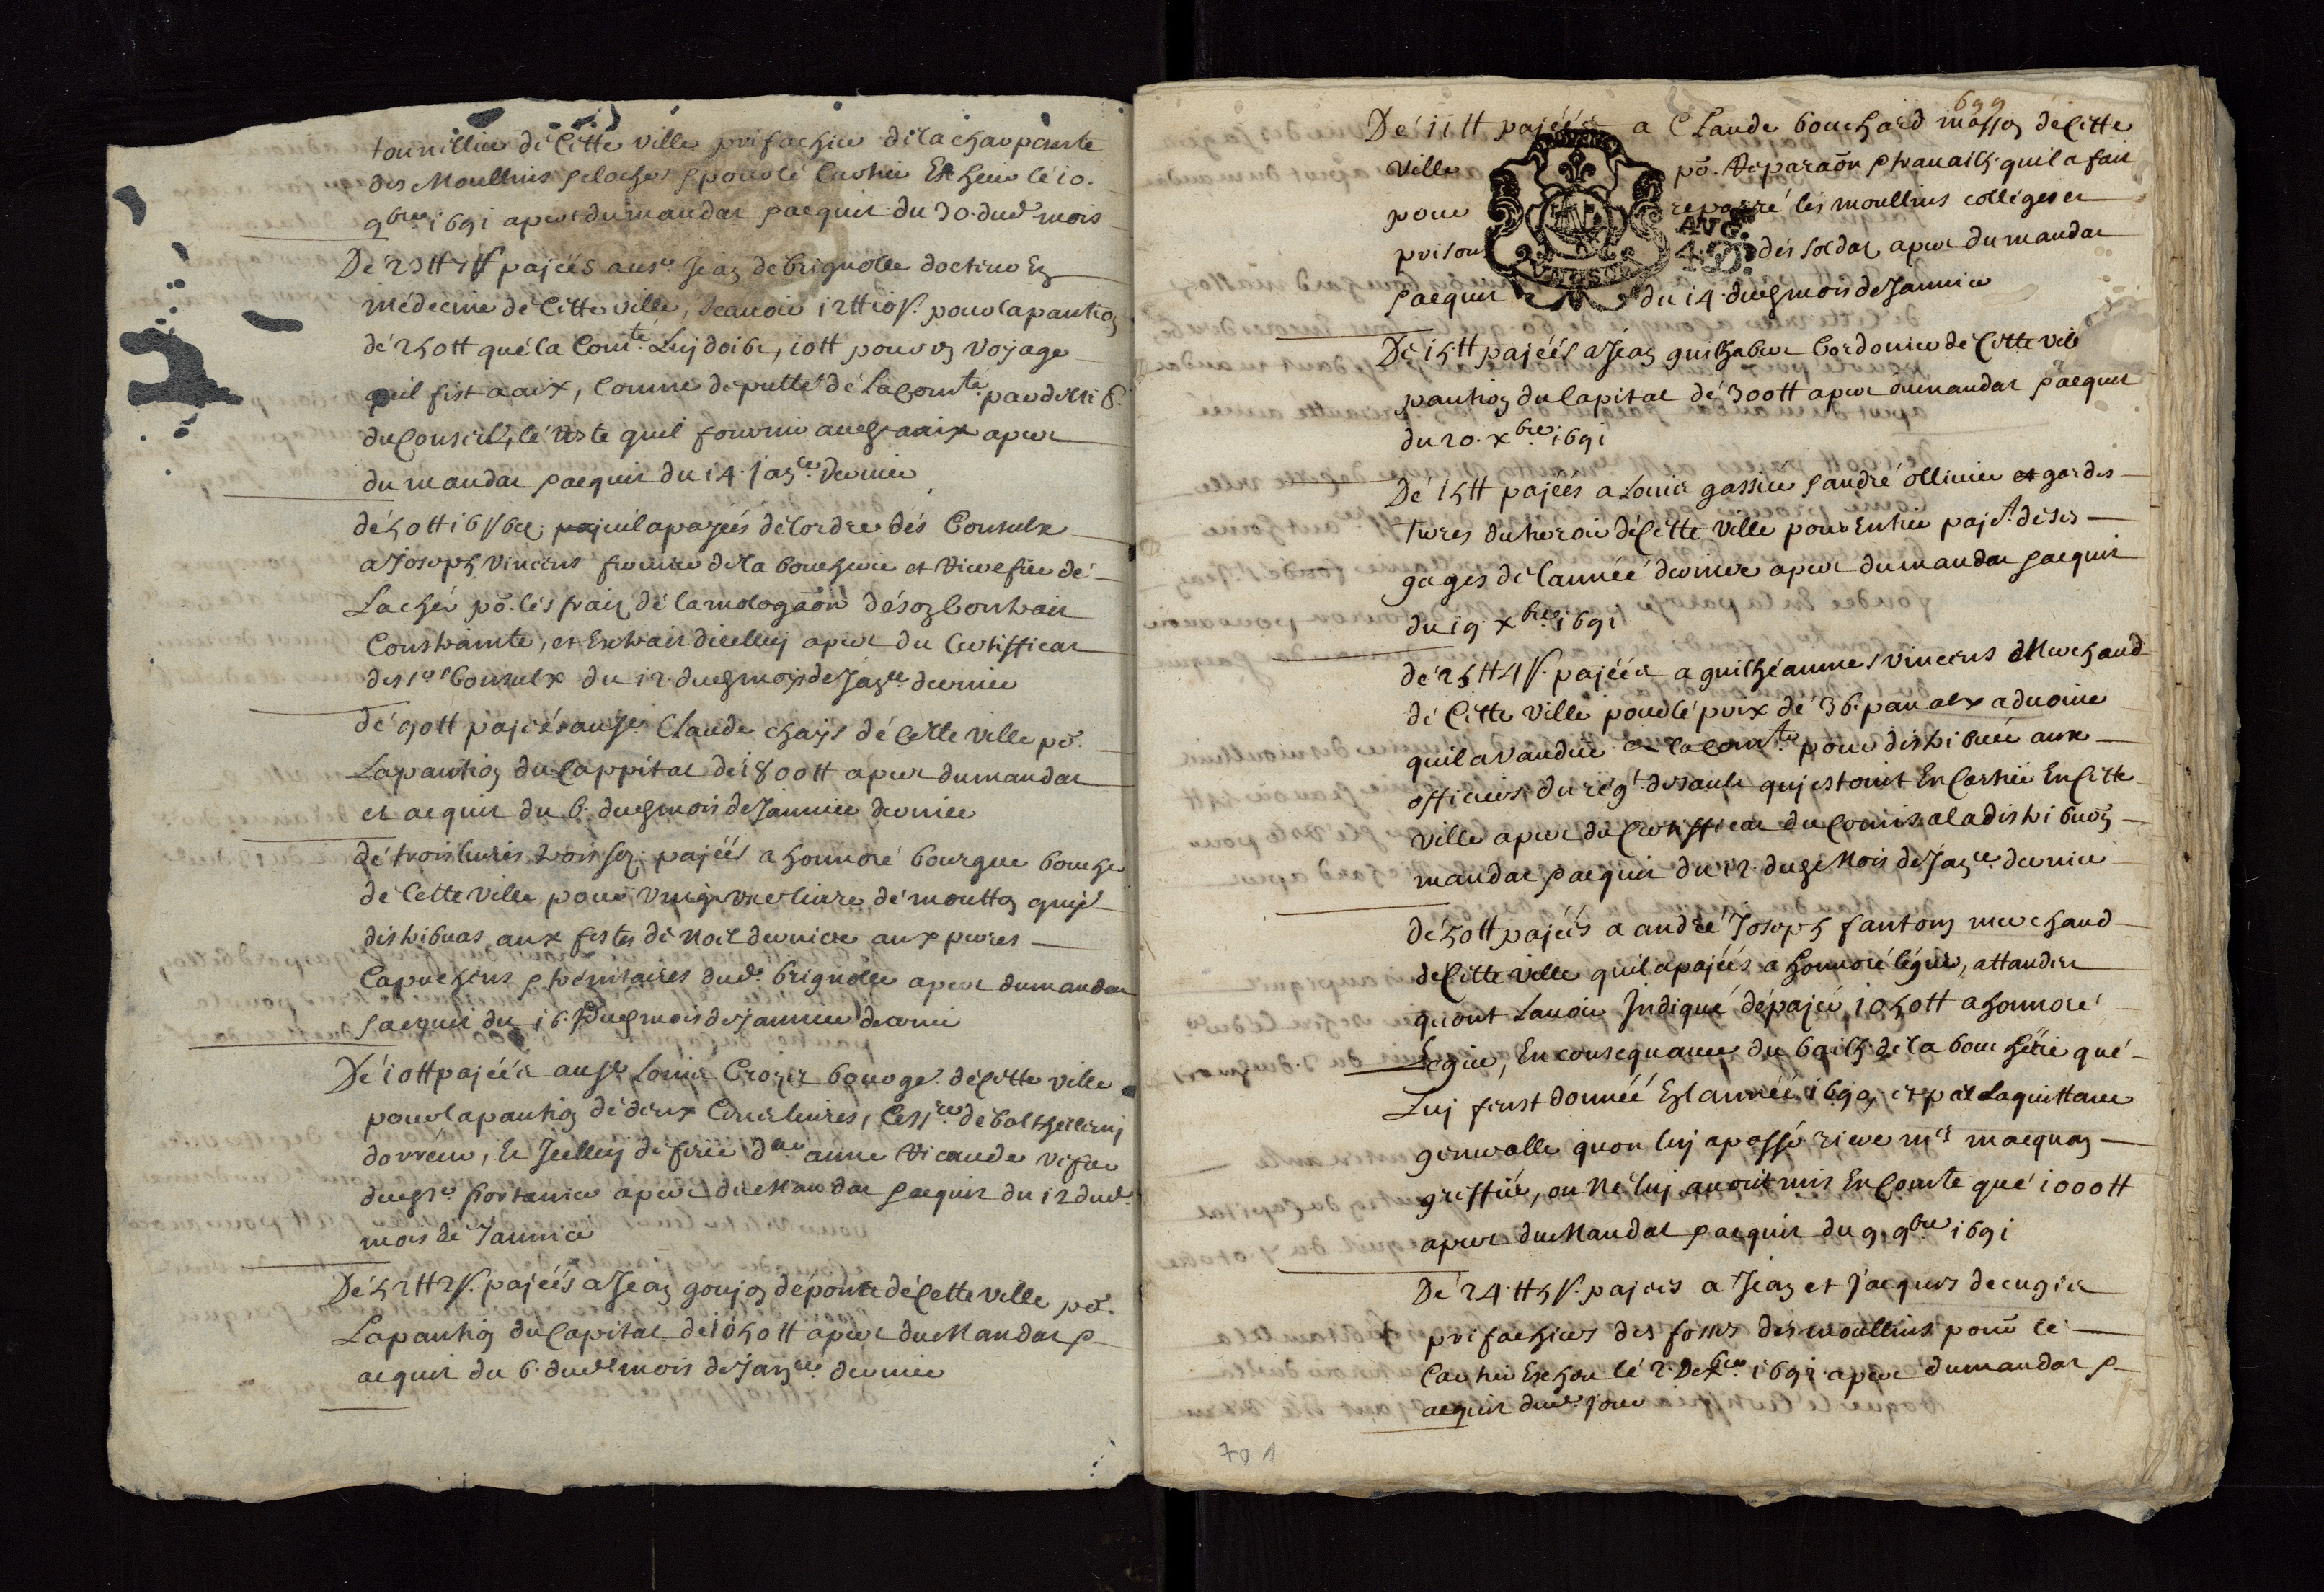 tournillier de Cette ville prifachier de la charpante
des Moullins pour lé Cartier Escheu lé 10.
9bre 1691 apert du mandat & acquit du 30. dud mois
Dé 23tt pajéés au sr Jean de brignolle docteur En
Médecine dé Cette ville, scauoir 12tt 10s. pour la pantion
dé 250tt qué la Comté Luj doibt, 10tt pour un Voyage
quil fist a aix, Comme deputté dé La Comté par delli b.
du Conseil, lé Reste quil fourni aud aix apert
du mandat & acquit du 14. Janer. dernier
dé 50tt 16s quil a payéés dé lordre dés Consulx
a Joseph Vincens fermier de la boucherie et
po. lés frais dé lamologaon dé son Contrait
Constrainte, et Extrait dicelluj apert du Certifficat
des srs Consulx du 12. dud mois de Janer. dernier
dé 90tt pajéés au sr Claude chays dé Cette ville po.
La pantion du Cappital dé 1800tt apert du mandat
et acquit du 6. dud mois de Januier dernier
dé trois liures trois sos. pajéés a honnoré bourgue boucher
dé Cette ville pour Vingt vne liure dé moutton quil
distribuat aux festes dé Noel dernier aux peres
Capuchins & trénitaires dud. brignolle apert du mandat
& acquit du 16. dud mois de Januier dernier
Dé 10tt pajéés au sr Louis Crozet bourgs. dé Cette ville
pour la pantion dé deux Cens liures,
anne
apert du Mandat & acquit du 12 dud.
mois dé Januier
Dé 52tt 2s. pajéés a Jean goujon déponte dé Cette ville po.
La pantion du Capital dé 1050tt apert du Mandat &
acquit du 6. dud mois de Janer. dernier
699
Dé 11tt pajéés a CLaude bouchard masson dé Cette
Ville po. Reparaon & trauailh quil a fait
pour reparé lés moullins colléges et
prison AVG. 4. D. dés soldat, apert du mandat
& acquit du 14. dud mois de Januier
Dé 15tt pajéés a Jean guilhabert Cordonier dé Cette ville
pantion du Capital dé 300tt apert du mandat & acquit
du 20. xbre. 1691
Dé 15tt pajéés a Louis gassier & andré olliuier et gardes
terres du teroir dé Cette Ville pour Entier pajet. de ses
gages dé lannéé derniere apert du mandat & acquit
du 19. xbre. 1691
dé 25tt 4s. pajéés a guilheaume Vincens Marchand
dé Cette Ville pour lé prix dé 36. panalx aduoine
quil a vandue a la Comté pour distribuée aux
officiers du régt. desault quj estoint En Cartier En Cette
Ville apert du Certifficat du Comis a la distribuon
mandat & acquit du 12. dud Mois de Janer. dernier
dé 50tt pajéés a andré Joseph fanton marchand
dé Cette ville quil a pajéés a honnoré légier, attandu
quont Lauoir Indiqué dé pajer 1050tt a honnoré
Légier, En consequance du bailh de la boucherie qué
Luj feust donnéé En lannéé 1690, et par La quittance
generalle quon luj a passé riere mes macquan
greffier, on Né luj auoit mis En Comte qué 1000tt
apert du Mandat & acquit du 9. 9bre 1691
Dé 24.tt 5s. pajées a Jean et Jacques decugis
prifachiers des fosses des moullins pour lé
Cartier Escheu lé 2. Dexbre. 1691. apert du mandat &
acquit dud jour
701